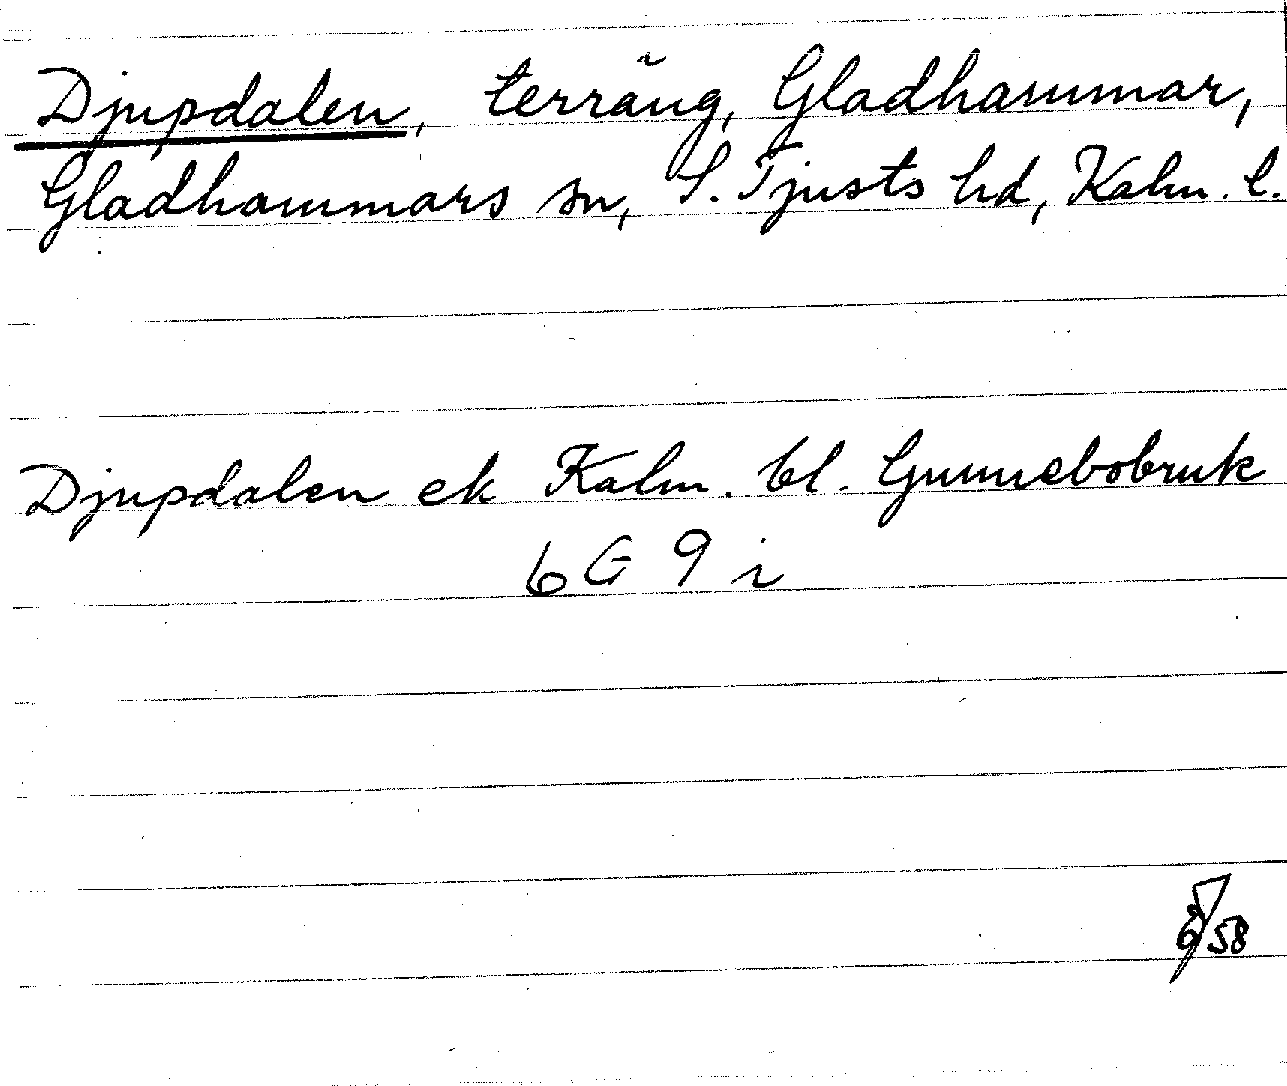 Djupdalen, terräng, Gladhammar,
Gladhammars sn, S. Tjusts hd, Kalm. l.
Djupdalen ek Kalm. bl. Gunnebobruk
6 G 9 i
58